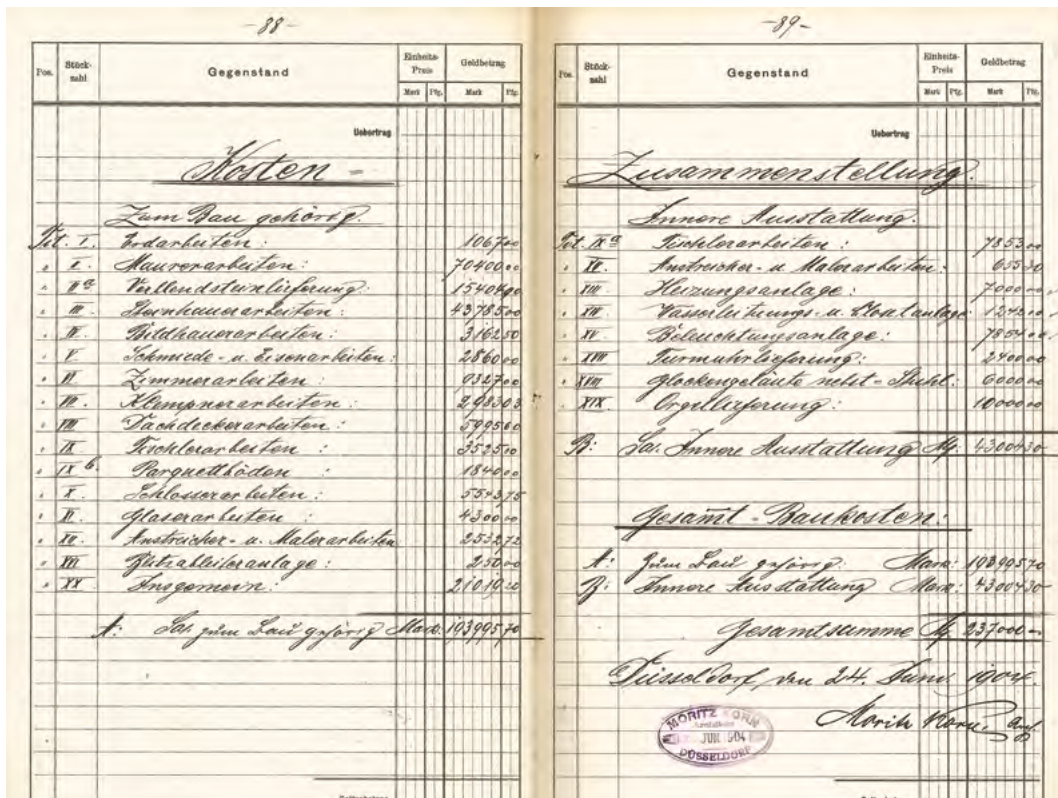 -88-
Pos. Stück- zahl Gegenstand Einheits- Preis Geldbetrag
Mark Pfg. Mark Pfg.
Uebertrag
Kosten -
Zum Bau gehörig.
Tit. I. Erdarbeiten: 1067 00
" II. Maurerarbeiten: 70400 00
" IIa Verblendsteinlieferung: 15404 90
" III. Steinhauerarbeiten: 43785 00
" IV. Bildhauerarbeiten: 3162 50
" V. Schmiede- u. Eisenarbeiten: 2860 00
" VI. Zimmerarbeiten: 9327 00
" VII. Klempnerarbeiten: 2983 03
" VIII. Dachdeckerarbeiten: 5995 60
" IX Tischlerarbeiten: 3525 00
" IX b. Parquettböden 1840 00
" X. Schlosserarbeiten: 5543 75
" XI. Glaserarbeiten: 4300 00
" XII. Anstreicher- u. Malerarbeiten 2532 72
" Blitzableiteranlage: 250 00
" XX. Insgemein: 21019 20
A: Sa. zum Bau gehörig Mark: 193995 70
-89-
Pos. Stück- zahl Gegenstand Einheits- Preis Geldbetrag
Mark Pfg. Mark Pfg.
Uebertrag
Zusammenstellung.
Innere Ausstattung.
Tit. IXa Tischlerarbeiten: 7853 00
" XII. Anstreicher- u. Malerarbeiten: 655 30
" XIII. Heizungsanlage: 7000 00
" XIV. Wasserleitungs- u. Kloakanlage: 1242 00
" XV. Beleuchtungsanlage: 7854 00
" XVII Turmuhrlieferung: 2400 00
" XVIII Glockengeläute nebst-Stuhl: 6000 00
" XIX. Orgellieferung: 10000 00
B: Sa. Innere Ausstattung M. 43004 30
Gesamt-Baukosten:
A: Zum Bau gehörig: Mark: 193995 70
B: Innere Ausstattung Mark: 43004 30
Gesamtsumme M. 237000 -
Düsseldorf, den 24. Juni 1904.
Moritz Korn.
MORITZ KORN
JUN 1904
DÜSSELDORF